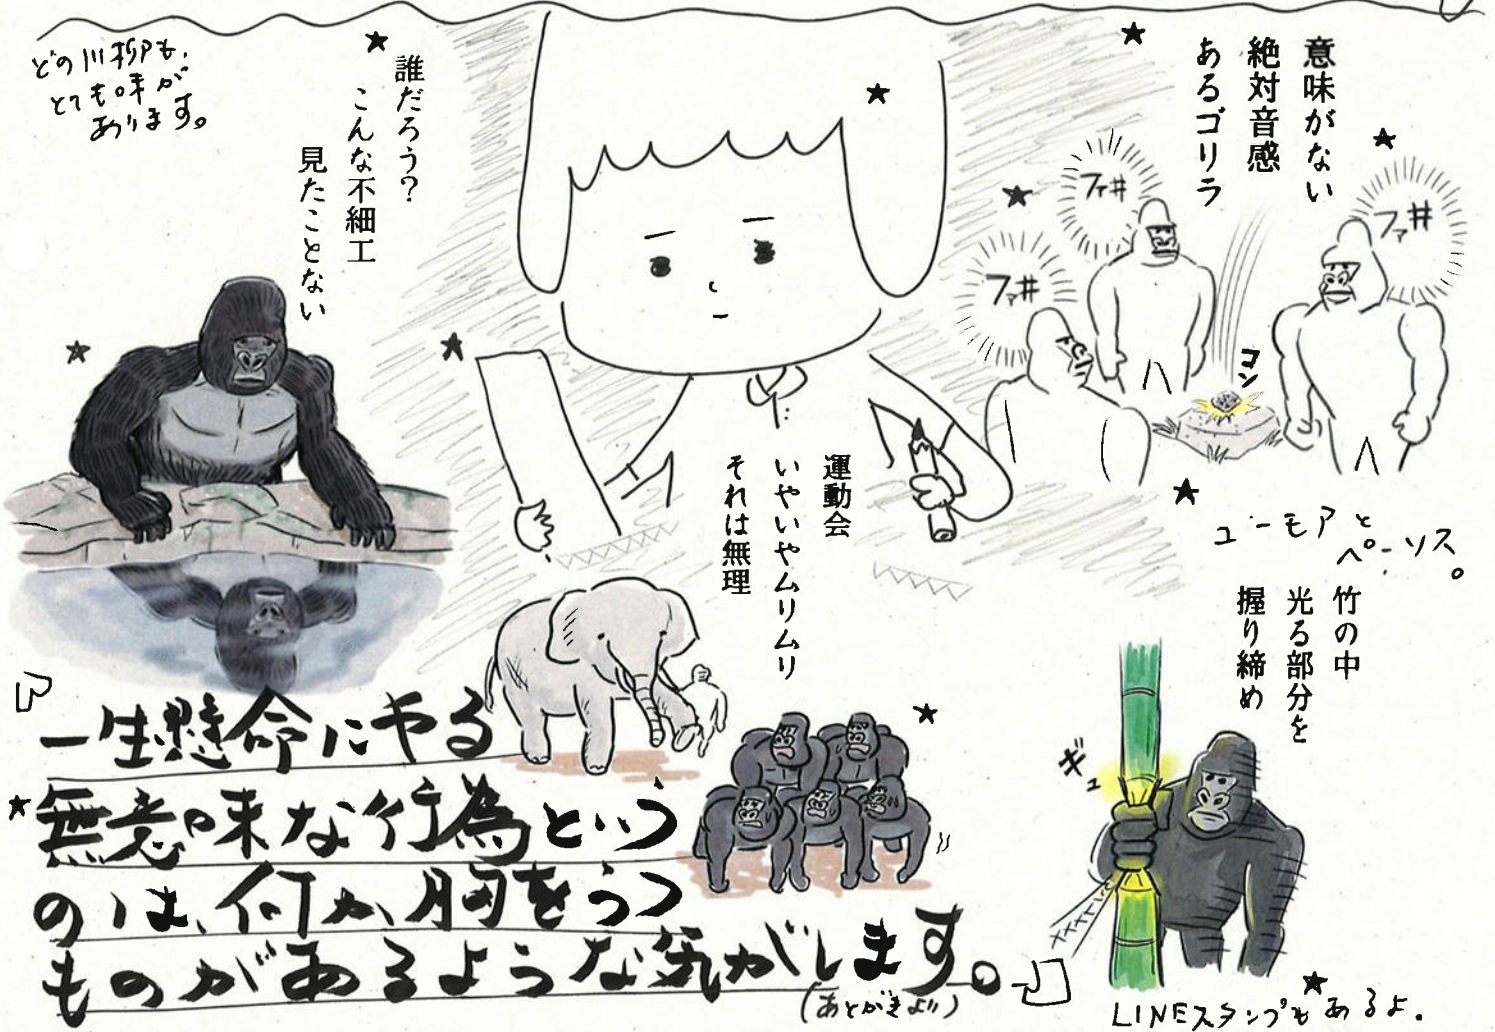 どの川柳も、
とても味が
あります。
誰だろう?
こんな不細工
見たことない
意味がない
絶対音感
あるゴリラ
ファ#
ファ#
ファ#
コン
ユーモアと
ペーソス。
運動会
いやいやムリムリ
それは無理
竹の中
光る部分を
握り締め
ギュ
「一生懸命にやる
無意味な行為という
のは、何か、胸をうつ
ものがあるような気がします。」
(あとがきより)
LINEスタンプもあるよ.